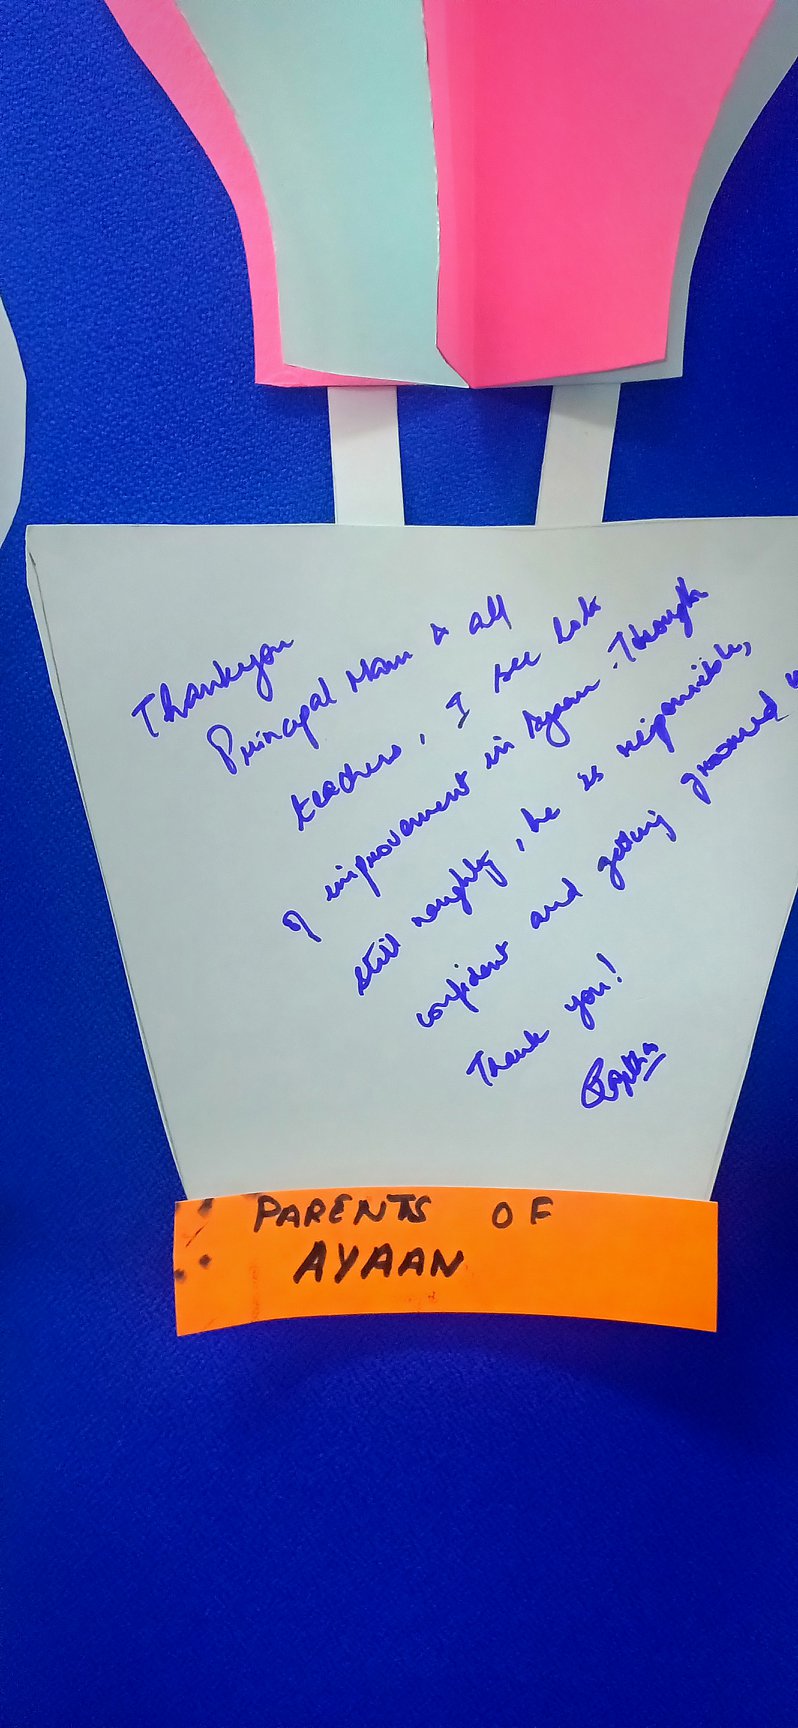 Thankyou
Principal Mam & all
teachers, I see lots
of improvement in Ayaan. Though
still naughty, he is responsible,
confident and getting groomed
Thank you!
PARENTS OF
AYAAN